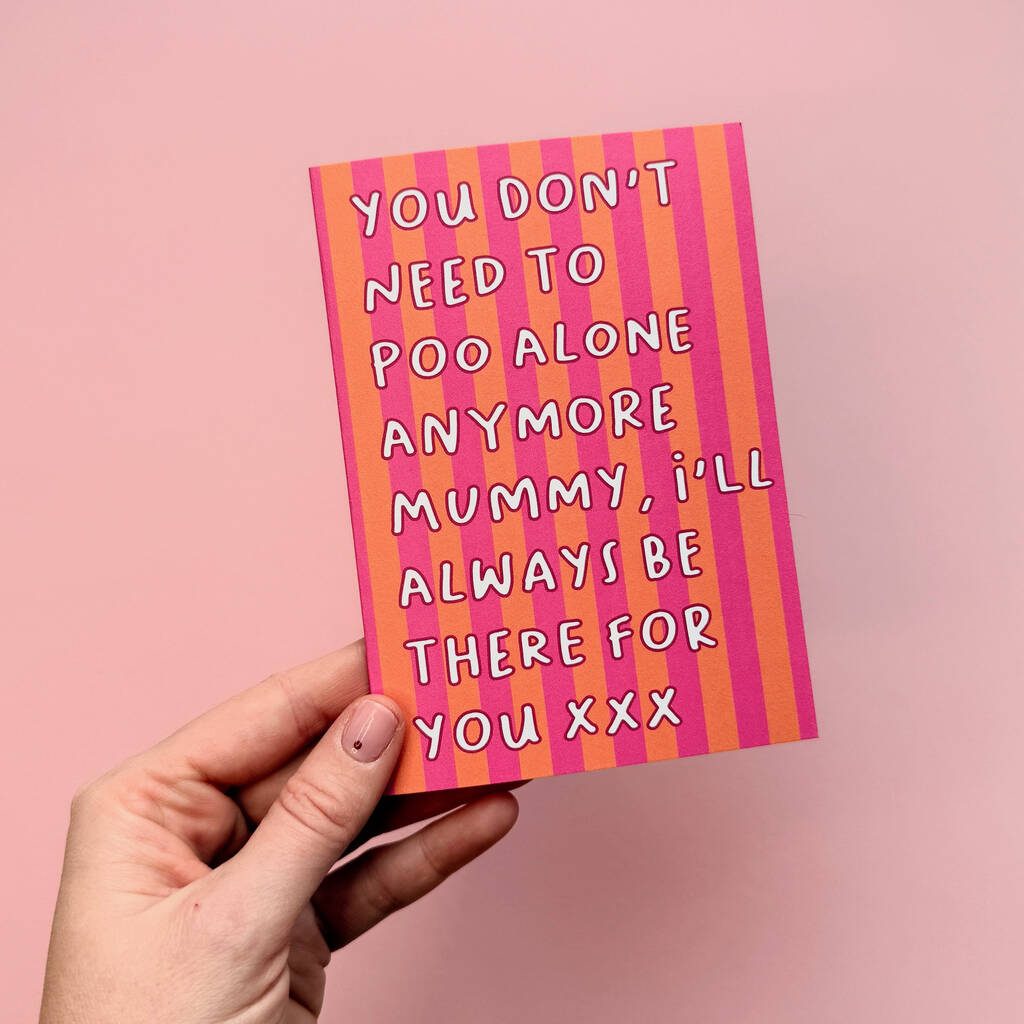 YOU DON'T
NEED TO
POO ALONE
ANYMORE
MUMMY, i'LL
ALWAYS BE
THERE FOR
YOU XXX